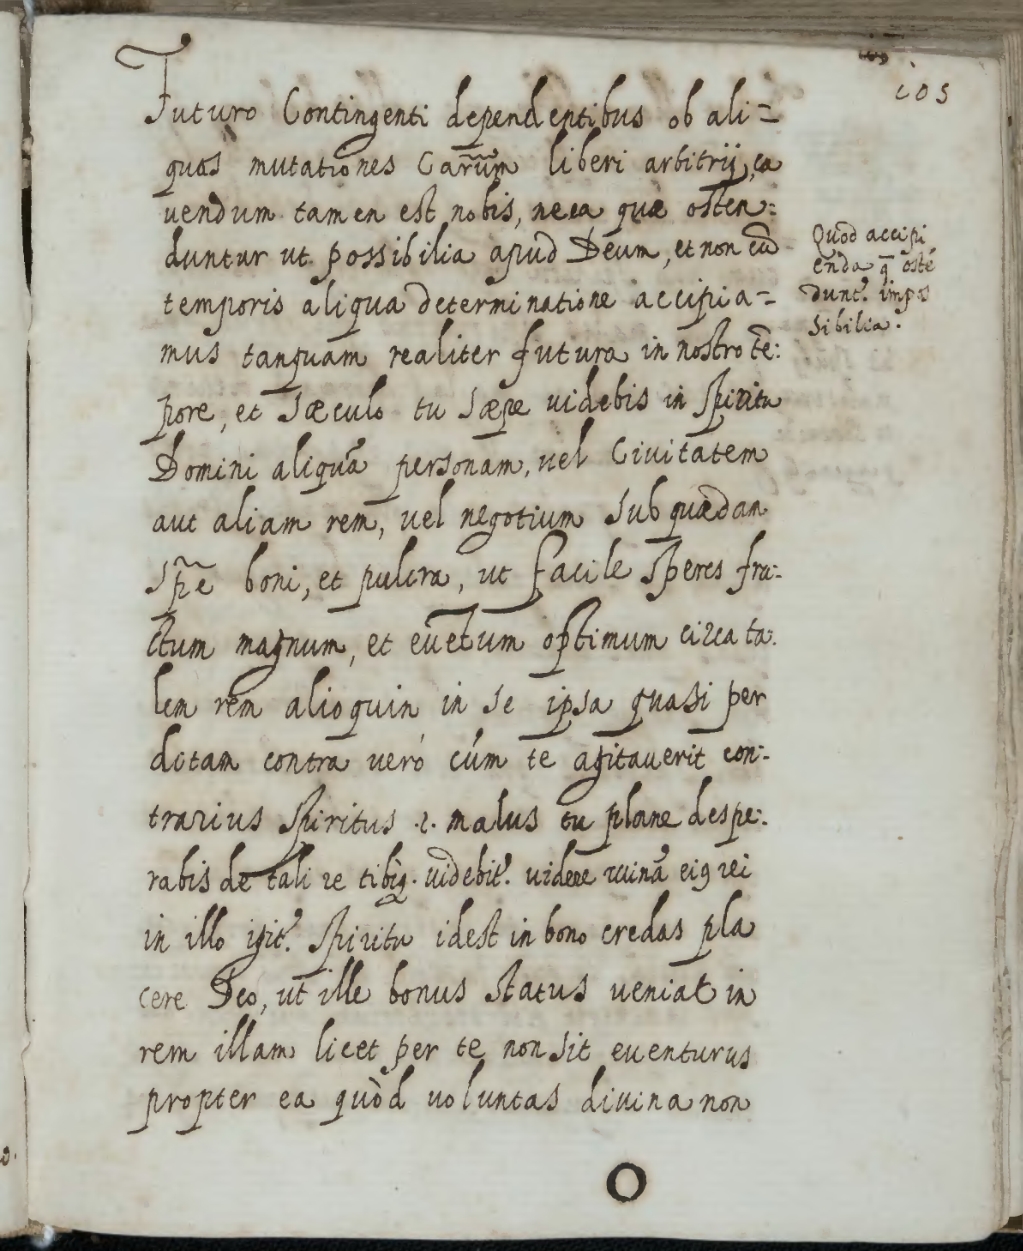 105
Futuro Contingenti dependentibus ob ali=
quas mutationes Carũm liberi arbitrij, ca
uendum tamen est nobis, ne ea quæ osten:
duntur ut possibilia apud Deum, et non cũ
temporis aliqua determinatione accipia=
mus tanquam realiter futura in nostro tẽ:
pore, et sæculo tu sæpe uidebis in spiritu
Domini aliquã personam, uel Ciuitatem
aut aliam rem, uel negotium sub quædan
spẽ boni, et pulcra, ut facile speres fru:
ctum magnum, et euẽtum optimum circa ta.
lem rem alioquin in se ipsa quasi per
ditam contra uerò cúm te agitauerit con:
trarius spiritus .i. malus tu plane despe:
rabis de tali re tibiq. uidebit. uidere ruinã eiꝯ rei
in illo igit. spiritu idest in bono credas pla
cere Deo, ut ille bonus status ueniat in
rem illam licet per te non sit euenturus
propter ea quòd uoluntas diuina non
Quòd accipi
enda q̃ ostẽ
dunt. impos
sibilia.
O